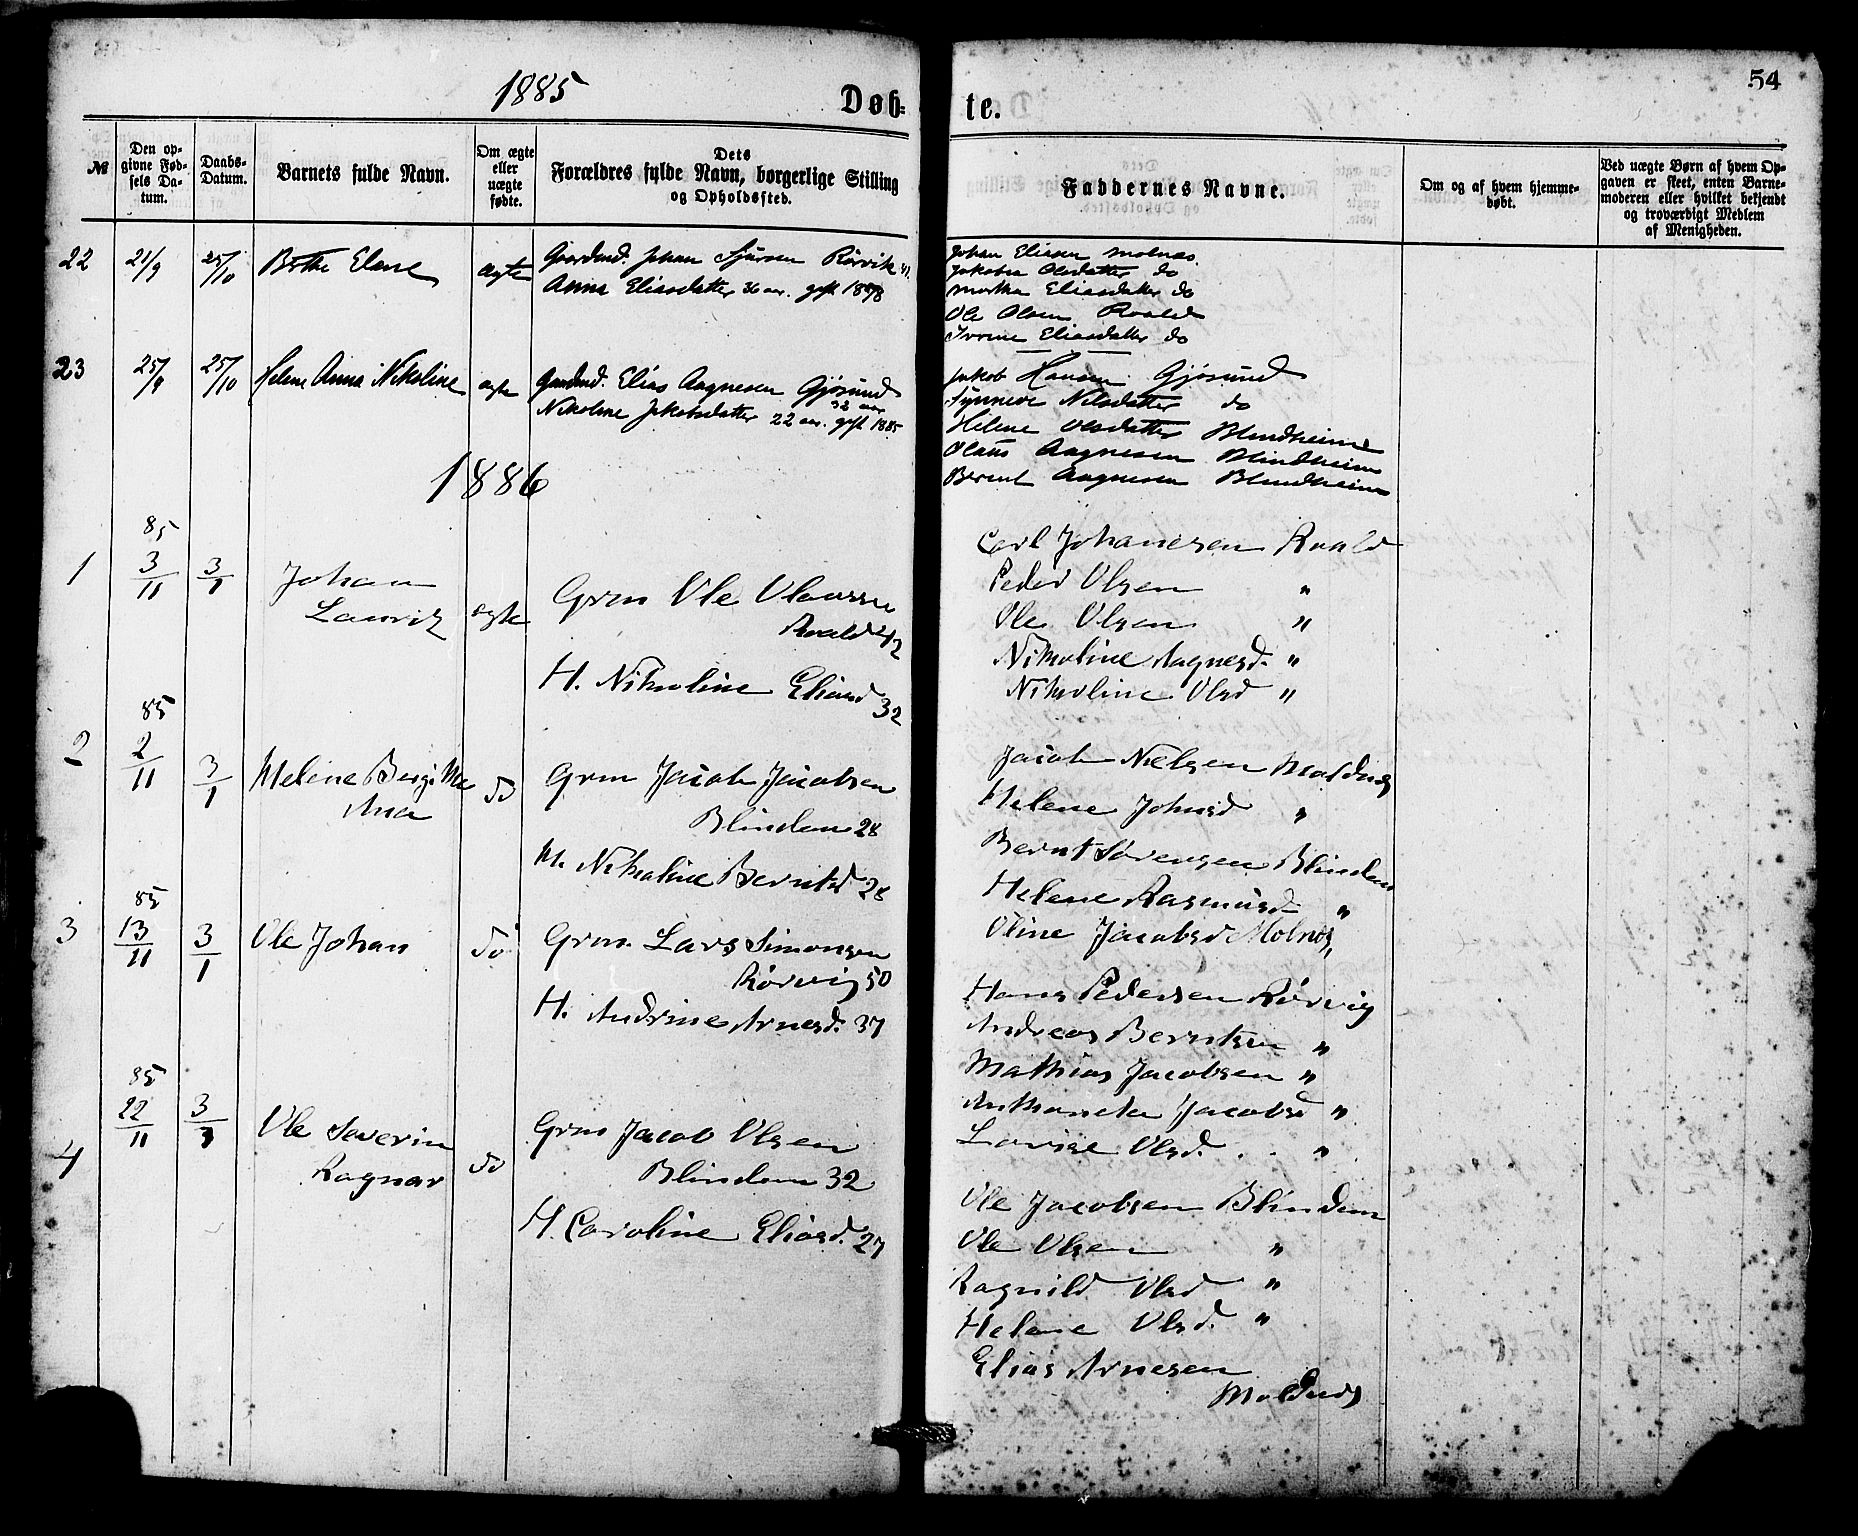 1885
Døb-
te.
54
№
Den op-
givne Fød-
sels Da-
tum.
Daabs-
Datum.
Barnets fulde Navn.
Om ægte
eller
uægte
fødte.
Dets
Forældres fulde Navn, borgerlige Stilling
og Opholdssted.
Faddernes Navne.
Om og af hvem hjemme-
døbt.
Ved uægte Børn af hvem Op-
gaven er skeet, enten Barne-
moderen eller hvilket bekjendt
og troværdigt Medlem
af Menigheden.
22 21/9 25/10 Elane ægte Gaardmd. Johan Sjursen Rörvik
Anna Eliasdatter 36 aar. gift 1878
Johan Eliasen Molnæs.
Jakobea Olsdatter do
Martha Eliasdatter do
Ole Olsen Roald
Eliasdatter do
23 25/9 25/10 Helene Anna Nikoline ægte Gaardmd. Elias Aagnesen Gjøsund
32 aar
Nikoline Jakobsdatter 22 aar. gift 1885
Jakob Hansen Gjøsund
Synneve Nilsdatter do
Helene Olsdatter Blindheim
Olaus Aagnesen Blindheim
Berent Aagnesen Blindheim
1886
85
1 3/11 3/1 Johan
Lauritz ægte Grm Ole Olaussen
Roald 42
H. Nikoline Eliasd 32
Carl Johanesen Roald
Peder Olsen "
Ole Olsen "
Nikoline Aagnesd. "
Nikoline Olsd "
85
2 2/11 3/1 Helene Bergitha
Ana do Grm Jacob Jacobsen
Blindem 28
H. Nikoline Berntsd 28
Jacob Nielsen Moldnes
Helene Johnsd "
Bernt Sørensen Blindem
Helene Rasmusd "
Oline Jacobsd Molnes,
85
3 13/11 3/1 Ole Johan do Grm. Lars Simonsen
Rørvig 50
H. Andrine Arnesd. 37
Hans Pedersen Rørvig
Andreas Berntsen "
Mathias Jacobsen "
Anthoneta Jacobsd "
Lovise Olsd. . . "
85
4 22/11 3/1 Ole Severin
Ragnar do Grm Jacob Olsen
Blindem 32
H. Caroline Eliasd. 27
Ole Jacobsen Blindem
Ole Olsen "
Ragnild Olsd "
Helene Olsd. "
Elias Arnesen
Moldnes